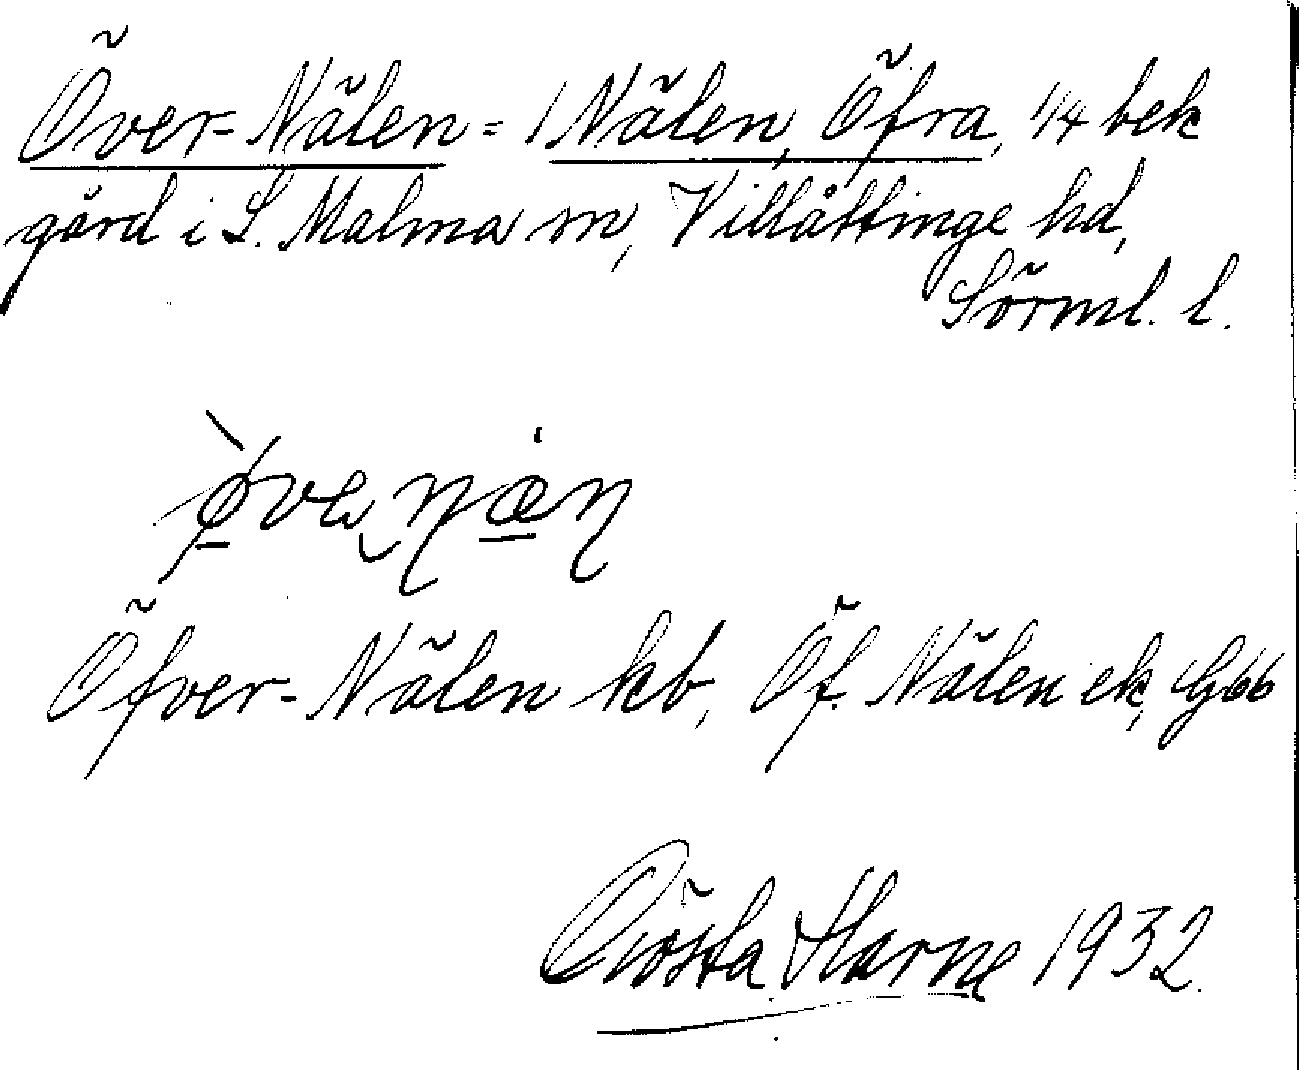 Över-Nälen = 1 Nälen, Öfra, 1/4 bek
gård i L. Malma sn, Villåttinge hd,
Sörml. l.
Öfver-Nälen kb, Öf. Nälen ek, G66
Gösta Harne 1932.